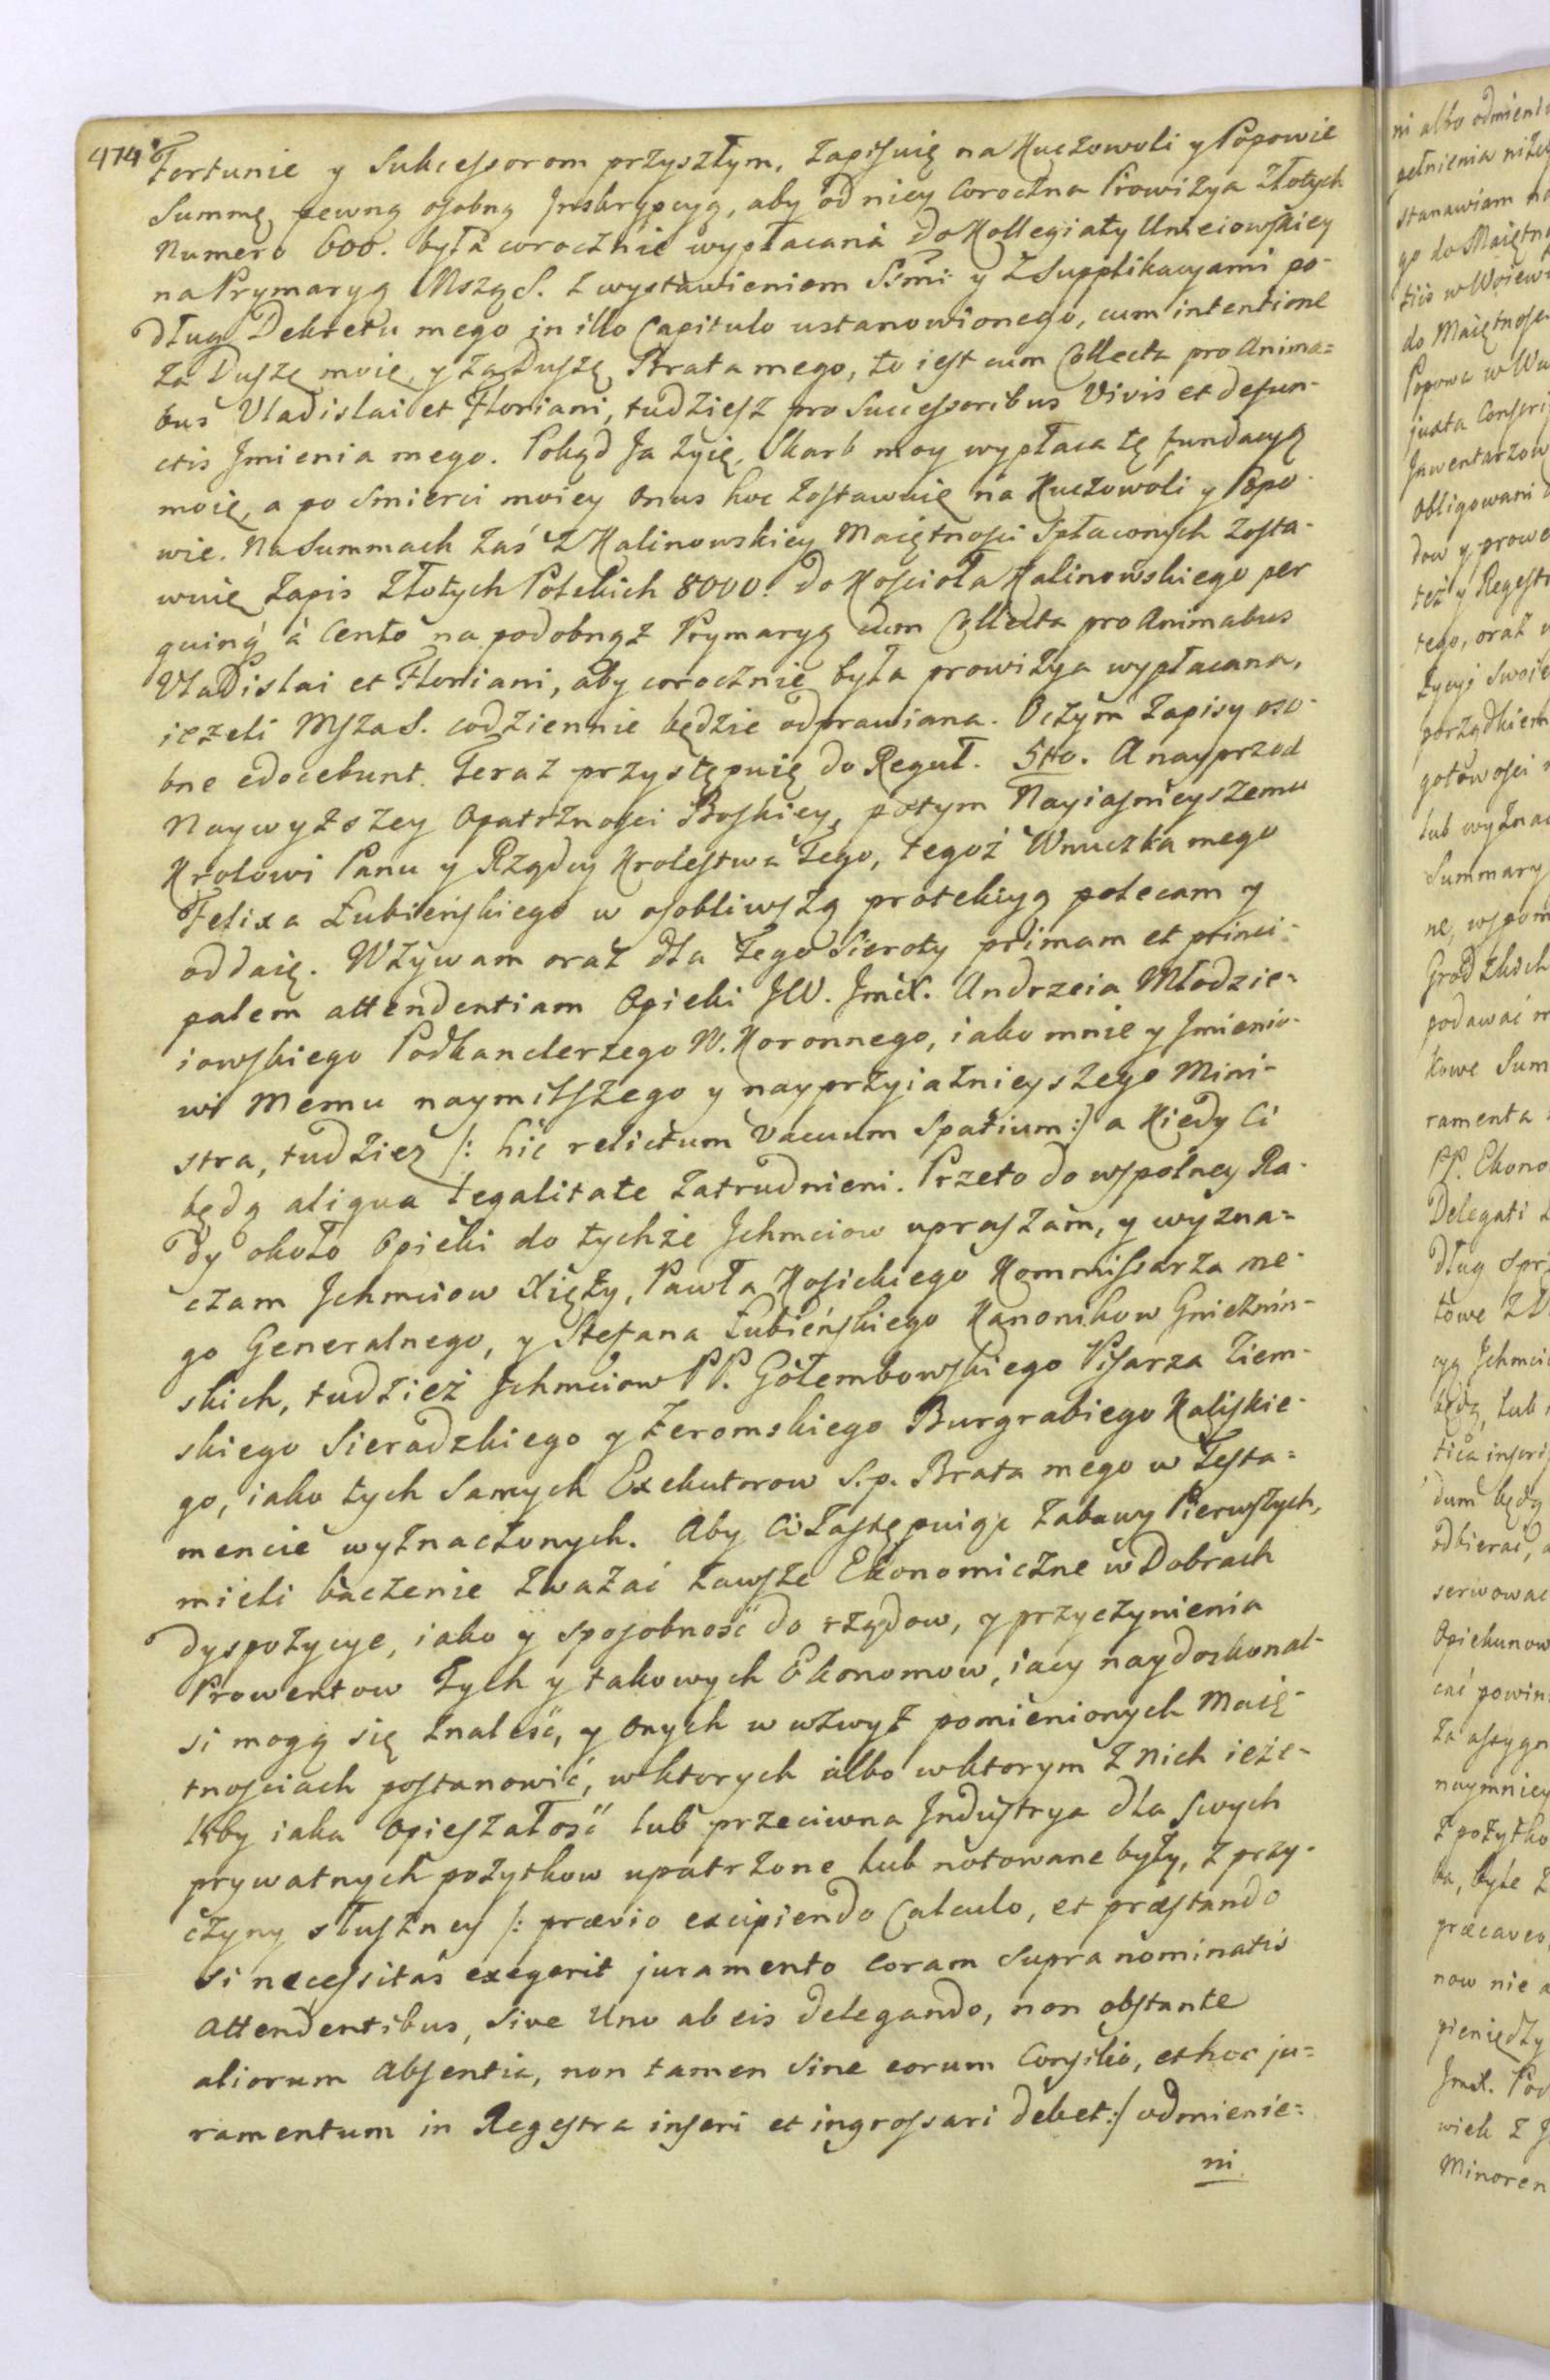 474
Fortunie y Sukcessorom przyszłym, Zapisuię na Kuczowoli y Popowie
Summę pewną osobną Jnskrypcyą, aby od niey Coroczna Prowizya Złotych
Numero 600. była corocznie wypłacana do Kollegiaty Unieiowskiey
na Prymaryą Mszą S. z wystawieniem Ssmi y z Supplikacyami po-
dług Dekretu mego in illo Capitulo ustanowionego, cum intentione
za Duszę moię, y za Duszę Brata mego, to iest cum Collecta pro Anima=
bus Vladislai et Floriani, tudziesz pro Successoribus Vivis et defun-
ctis Jmienia mego. Pokąd Ja żyię, Skarb moy wypłaca tę fundacyą
moię, a po smierci moiey Onus hoc zostawuię na Kuczowoli y Popo-
wie. Na Summach zaś z Kalinowskiey Maiętnosci Spłaconych Zosta-
wuię Zapis Złotych Polskich 8000. do Kościoła Kalinowskiego per
quinq́ à Cento na podobnąż Prymaryą cum Collecta pro Animabus
Vladislai et Floriani, aby corocznie była prowizya wypłacana,
ieżeli Msza S. codziennie będzie odprawiana. O czym Zapisy oso-
bne edocebunt. Teraz przystępuię do Reguł. 5to. A nayprzod
Naywyższey Opatrznosci Boskiey, potym Nayiasnieyszemu
Krolowi Panu y Rządcy Krolestwa Tego, tegoż Wnuczka mego
Felixa Łubieńskiego w osobliwszą protekcyą polecam y
oddaię. Wzywam oraz dla Tego Sieroty primam et princi-
palem attendentiam Opieki JW. Jmci X. Andrzeia Młodzie-
iowskiego Podkanclerzego W. Koronnego, iako mnie y Jmienio-
wi Memu naymilszego y nayprzyiaznieyszego Mini-
stra, tudzież /: hic relictum vacuum Spatium :/ a Kiedy Ci
będą aliqua legalitate zatrudnieni. Przeto do wspolney Ra-
dy około Opieki do tychże Jchmciow upraszam, y wyzna=
czam Jchmciow Xięży, Pawła Kosickiego Kommissarza me-
go Generalnego, y Stefana Łubieńskiego Kanonikow Gnieznin-
skich, tudzież Jchmciow PP. Gołembowskiego Pisarza Ziem-
skiego Sieradzkiego y Żeromskiego Burgrabiego Kaliskie-
go, iako tych Samych Exekutorow S. p. Brata mego w Testa=
mencie wyznaczonych. Aby Ci zastępuiąc zabawy Pierwszych,
mieli baczenie zważać zawsze Ekonomiczne w Dobrach
dyspozycye, iako y sposobność do rządow, y przyczynienia
Prowentow Tych y takowych Ekonomow, iacy naydoskonal-
si mogą się znaleść, y Onych w wzwyż pomienionych Maię-
tnosciach postanowić, w ktorych albo w ktorym z Nich ieże-
liby iaka Opieszałość lub przeciwna Jndustrya dla swych
prywatnych pożytkow upatrzone lub notowane były, z przy-
czyny słuszney /: prævio excipiendo Calculo, et præstando
si necessitas exegerit juramento Coram Supra nominatis
Attendentibus, Sive Uno ab eis delegando, non obstante
aliorum Absentia, non tamen Sine eorum Consilio, et hoc ju=
ramentum in Regestra inseri et ingrossari debet :/ odmienie=
ni
ni albo odmien
pełnienia niże
stanawiam na
go do Maiętn
do Maiętnosc
juxta Conscri
Jnwentarzow
Obligowani
dow y prowe
też y Regestr
tego, oraz
gotowosci
lub wyzna
Summary
Grodzkich
podawać
kowe Sum
ramenta
PP. Ekono
Delegati
dług
towe z
cyą Jchmci
będą, lub
dum będą
odbierać,
serwowac
Opiekunow
cić powin
naymniey
z pożytko
praecaveo
now nie
pieniędzy
wiek z
Minoren